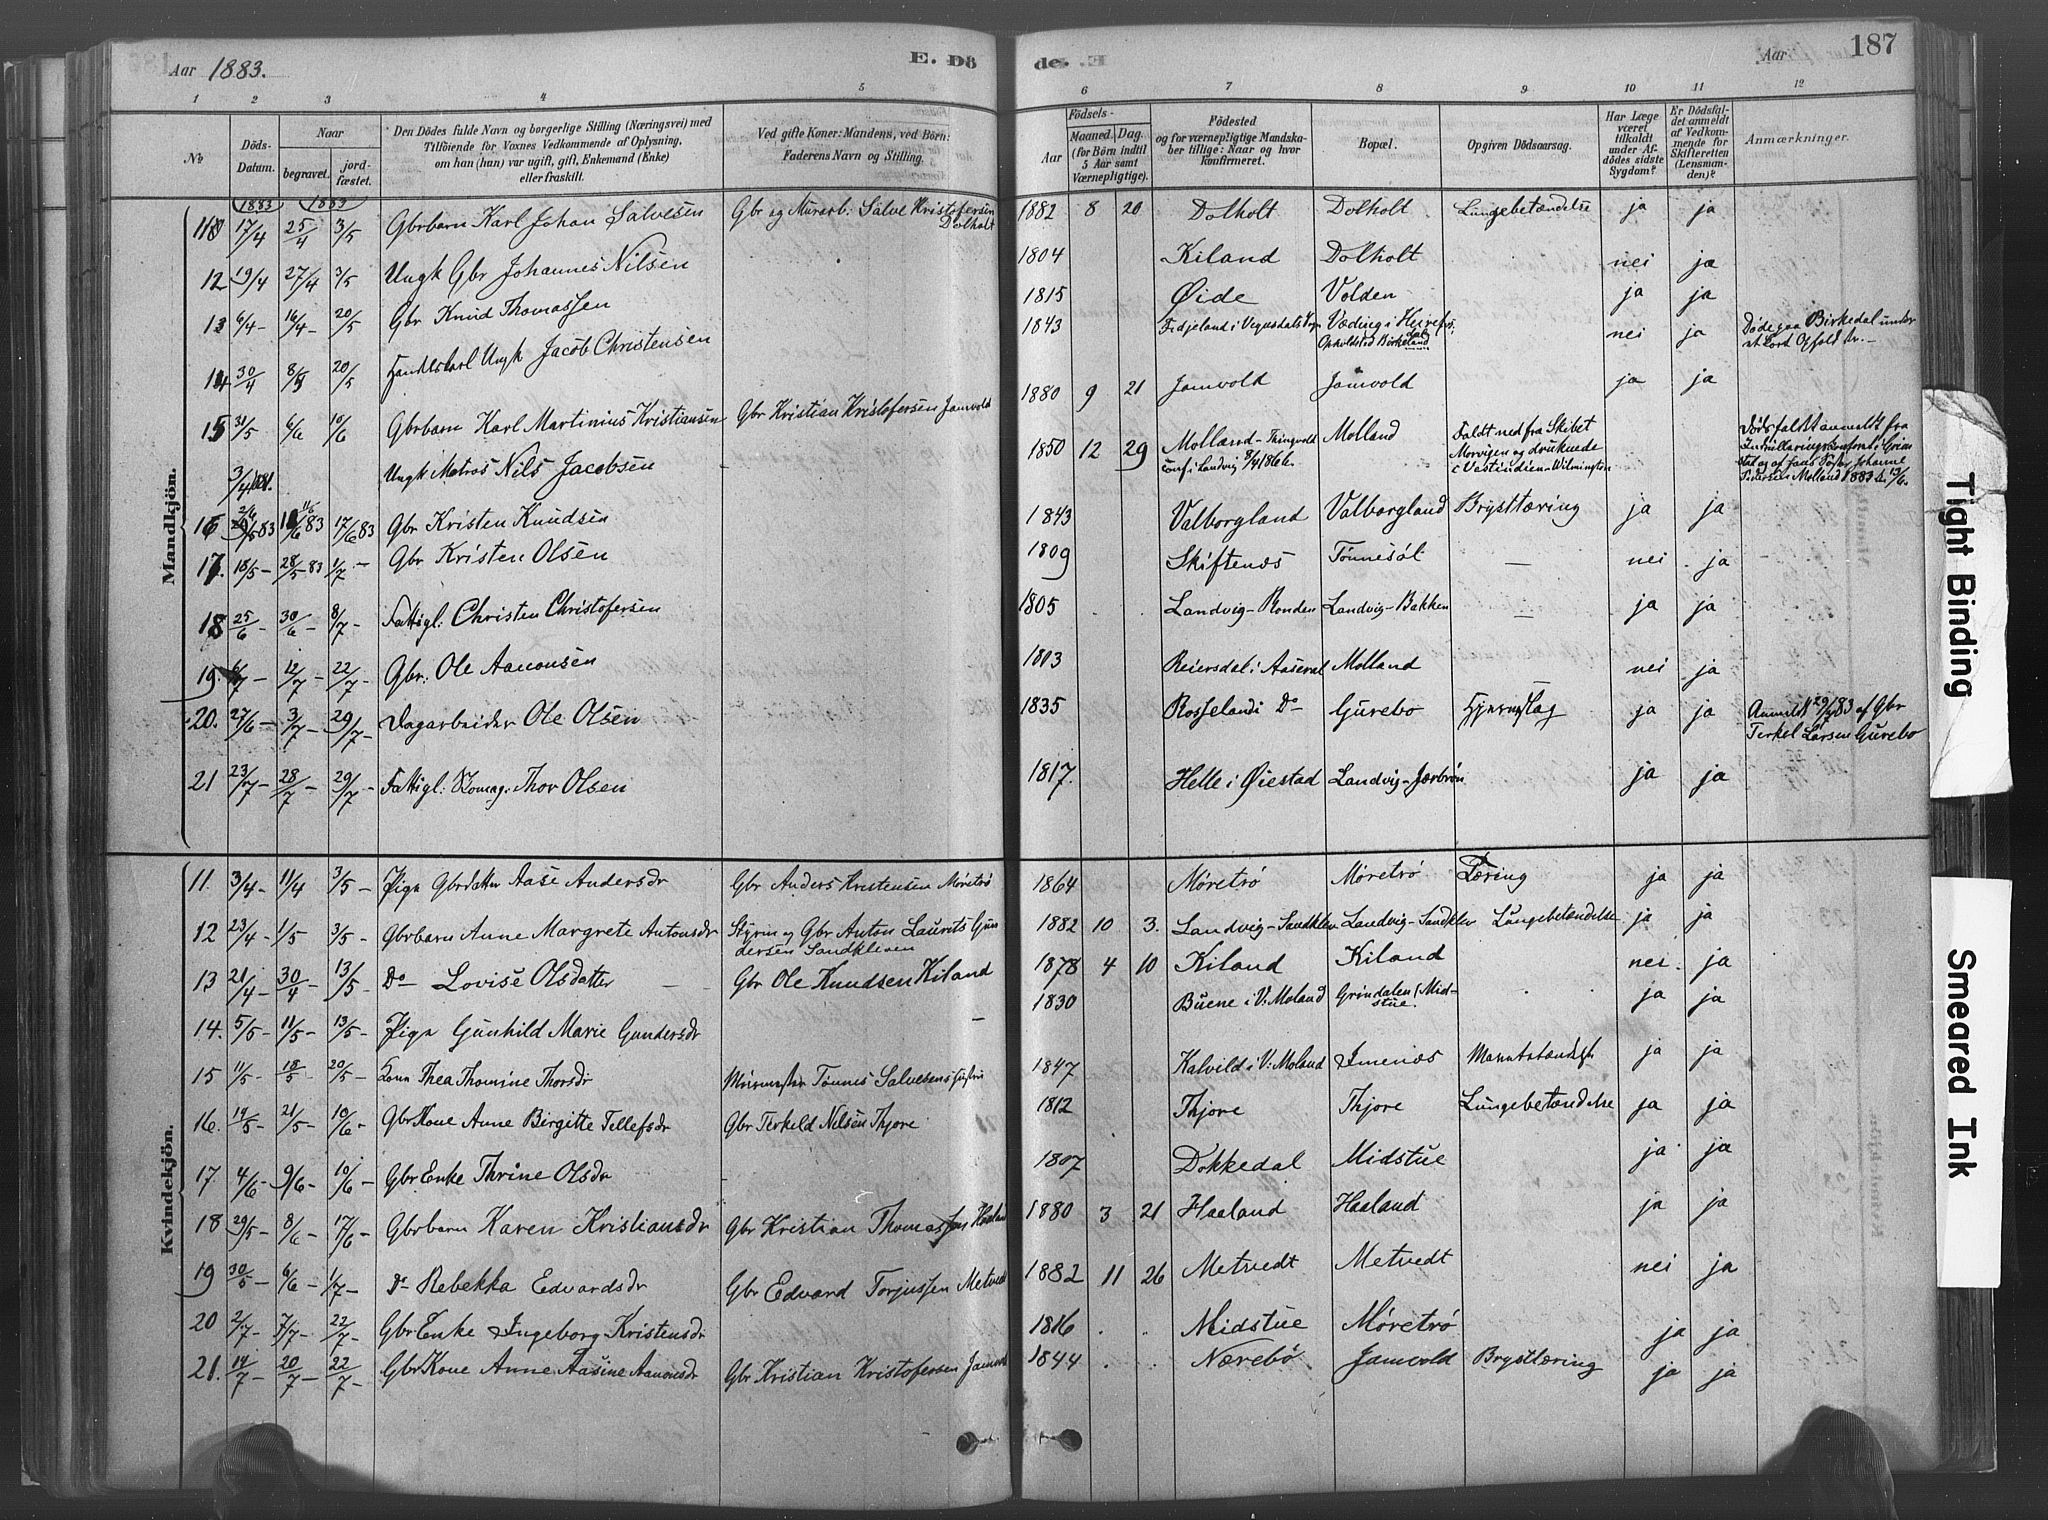 Aar 1883. E. Dö
de. Aar 187
1 2 3 4 5 6 7 8 9 10 11 12
No Döds-Datum. Naar begravet. jordfæstet. Den Dödes fulde Navn og borgerlige Stilling (Næringsvei) med Tilföiende for Voxnes Vedkommende af Oplysning, om han (hun) var ugift, gift, Enkemand (Enke) eller fraskilt. Ved gifte Koner: Mandens, ved Börn: Faderens Navn og Stilling. Födsels- Aar Maaned. Dag. (for Börn indtil 5 Aar samt Værnepligtige). Födested og for værnepligtige Mandskaber tillige: Naar og hvor Konfirmeret. Bopæl. Opgiven Dödsaarsag. Har Læge været tilkaldt under Afdödes sidste Sygdom? Er Dödsfaldet anmeldt af Vedkommende for Skifteretten (Lensmanden)? Anmærkninger.
1883 1883
Mandkjön.
11 17/4 25/4 3/5 Gbrbarn Karl Johan Salvesen Gbr og Murarb: Salve Kristofersen Dolholt 1882 8 20 Dolholt Dolholt Lungebetændelse ja ja
12 19/4 27/4 3/5 Ungk Gbr Johannes Nilsen 1804 Kiland Dolholt nei ja
13 6/4 - 16/4 - 20/5 Gbr Knud Thomassen 1815 Øide Volden ja ja
14 30/4 8/5 20/5 Handelskarl Ungk Jacob Christensen 1843 Fidjeland i Vegusdals Væding i Herefosdal Opholdsted Birkeland nei ja Døde paa Birkedal under
15 31/5 6/6 10/6 Gbrbarn Karl Martinius Kristiansen Gbr Kristian Kristofersen Jomvold 1880 9 21 Jomvold Jomvold ja ja
3/4 1881. Ungk Matros Nils Jacobsen 1850 12 29 Molland - Thingvold conf. i Landvig 8/4 1866. Molland Faldt ned fra Skibet Morvigen og druknede i Vestindien - Wilmington Dødsfaldet anmeldt fra Indrulleringskontoret i Grimstad og af hans Søster Johanne Pedersen Molland 1883 13/6.
16 2/6 83 11/6 83 17/6 83 Gbr Kristen Knudsen 1843 Valborgland Valborgland Brysttæring ja ja
17. 18/5 - 28/5 83 1/7 - Gbr Kristen Olsen 1809 Skiftenæs Tønnesøl - nei ja
18 25/6 - 30/6 - 8/7 - Fattigl: Christen Christofersen 1805 Landvig-Ronden Landvig-Bakken - ja ja
19. 6/7 - 12/7 - 22/7 - Gbr: Ole Aanonsen 1803 Reiersdal i Aaseral Molland nei ja
20. 27/6 - 3/7 - 29/7 - Dagarbeider Ole Olsen 1835 Rosseland i Do Gurebo Hjerneslag ja ja Anmeldt 29/7 83 af Gbr Terkel Larsen Gurebo
21 23/7 - 28/7 - 29/7 - Fattigl: Skomag: Thor Olsen 1817. Helle i Øiestad Landvig-Jørbrön ja ja
Kvindekjön.
11. 3/4 - 11/4 3/5 - Pige Gbrdatter Aase Andersdr Gbr Anders Kristensen Møretrø 1864 Møretrø Møretrø Tæring ja ja
12 23/4 - 1/5 3/5 - Gbrbarn Anne Margrete Antonsdr Styrm og Gbr Anton Laurits Gundersen Sandkleven 1882 10 3. Landvig-Sandklev Landvig-Sandklev Lungebetændelse ja ja
13 21/4 - 30/4 - 13/5 - Do Lovise Olsdatter Gbr Ole Knudsen Kiland 1878 4 10 Kiland Kiland nei. ja
14. 5/5 - 11/5 - 13/5 - Pige Gunhild Marie Gundersdr - 1830 Buene i V: Moland Grindalen (Midstue. ja ja
15 11/5 - 18/5 - 20/5 - Kone Thea Thomine Thorsdr Murmester Tønnes Salvesen 1847 Kalvild i V: Moland Imenæs ja ja
16. 14/5 - 21/5 - 10/6 - GbrKone Anne Birgitte Tellefsdr Gbr Terkeld Nilsen Thjore 1812 Thjore Thjore Lungebetændelse ja ja
17. 4/6 - 9/6 - 10/6 - GbrEnke Thrine Olsdr - 1807 Dokkedal Midstue ja ja
18 29/5 - 8/6 - 17/6 - Gbrbarn Karen Kristiansdr Gbr Kristian Thomassen Haaland 1880 3 21 Haaland Haaland ja ja
19 30/5 - 6/6 - 1/7 - Do Rebekka Edvardsdr Gbr Edvard Torjussen Metvedt 1882 11 26 Metvedt Metvedt nei ja
20 2/7 - 7/7 - 22/7 - GbrEnke Ingeborg Kristensdr 1816 Midstue Møretrø ja ja
21. 14/7 - 20/7 - 22/7 - GbrKone Anne Aasine Aanonsdr Gbr Kristian Kristofersen Jomvold 1844 Nærebø Jomvold Brysttæring ja ja
Tight Binding
Smeared Ink